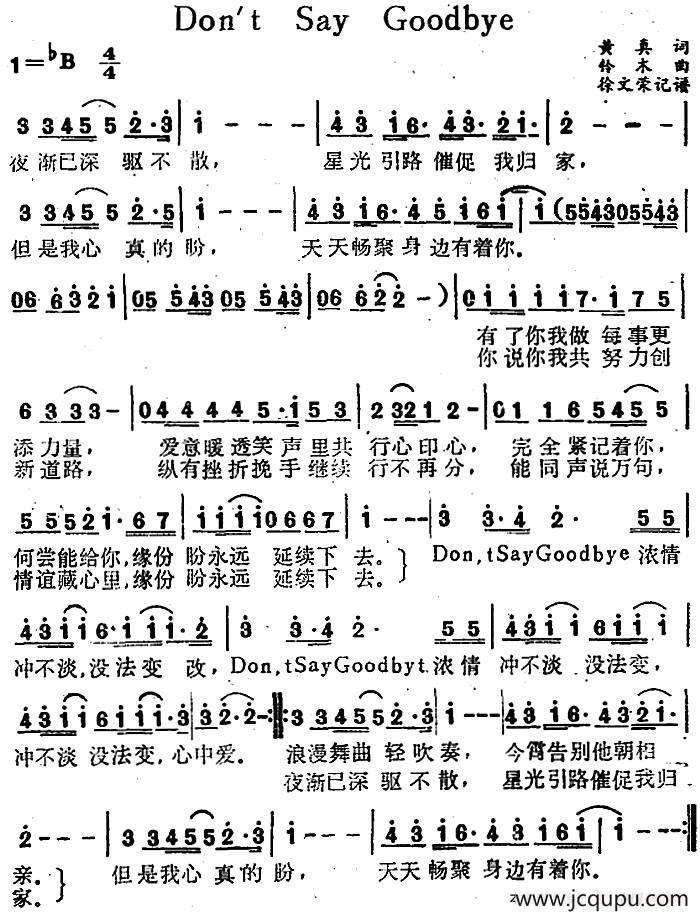 Don't Say Goodbye
1=♭B 4/4
黄真词
伶木曲
徐文荣记谱
3 3455 2·3 | 1 - - - | 43 16· 43· 21· | 2 - - - |
夜渐已深 驱不散， 星光引路 催促 我归家，
3 3455 2·5 | 1 - - - | 43 16· 45 161 | 1 (554305543
但是我心 真的盼， 天天畅聚 身边有着你。
06 6321 | 05 543 05 543 | 06 622 - ) | 01 1 1 17· 1 75 |
有了你我做 每事更
你说你我共 努力创
6 333 - | 04 4 4 45·153 | 23212 - | 01 16 5455 |
添力量， 爱意暖透笑声里共 行心印心， 完全紧记着你，
新道路， 纵有挫折挽手继续 行不再分， 能同声说万句，
5 5521· 67 | 11110667 | 1 - - 3 | 3·4 2· 55 |
何尝能给你，缘份 盼永远 延续下去。 Don,tSayGoodbye 浓情
情谊藏心里，缘份 盼永远 延续下去。
4311 6·111·2 | 3 3·4 2· 55 | 4311 6111 |
冲不淡，没法变 改，Don,tSayGoodbyt.浓情 冲不淡 没法变，
431161111·3 | 32·2· - :||: 3 345522·3 | 1 - - - | 43 16· 43 21· |
冲不淡 没法变，心中爱。 浪漫舞曲 轻吹奏， 今霄告别他朝相
夜渐已深 驱不散， 星光引路催促我归
2 - - - | 3 34552·3 | 1 - - - | 43 16·43 161 | 1 - - :||
亲。 但是我心真的盼， 天天畅聚身边有着你。
家。
www.jcqupu.com